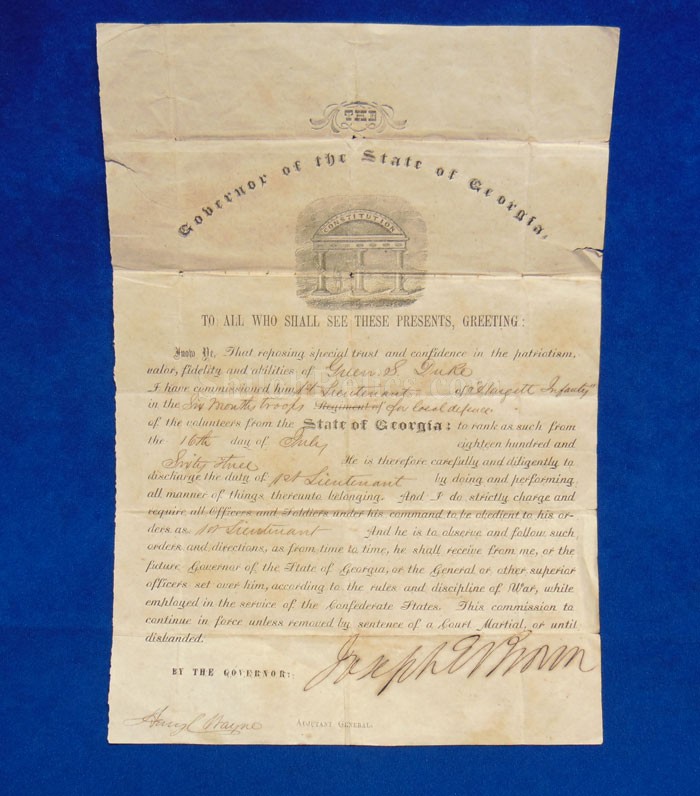 THE
Governor of the State of Georgia,
CONSTITUTION
TO ALL WHO SHALL SEE THESE PRESENTS, GREETING:
Know Ye, That reposing special trust and confidence in the patriotism,
valor, fidelity and abilities of Green S Duke
I have commissioned him 1st Lieutenant of "Hargett Infantry"
in the Six Month troops Regiment of for local defence
of the volunteers from the State of Georgia: to rank as such from
the 16th day of July eighteen hundred and
Sixty three He is therefore carefully and diligently to
discharge the duty of 1st Lieutenant by doing and performing
all manner of things thereunto belonging. And I do strictly charge and
require all Officers and Soldiers under his command to be obedient to his or-
ders as 1st Lieutenant And he is to observe and follow such
orders and directions, as from time to time, he shall receive from me, or the
future Governor of the State of Georgia, or the General or other superior
officers set over him, according to the rules and discipline of War, while
employed in the service of the Confederate States. This commission to
continue in force unless removed by sentence of a Court Martial, or until
disbanded.
BY THE GOVERNOR: Joseph E Brown
Henry C Wayne ADJUTANT GENERAL.